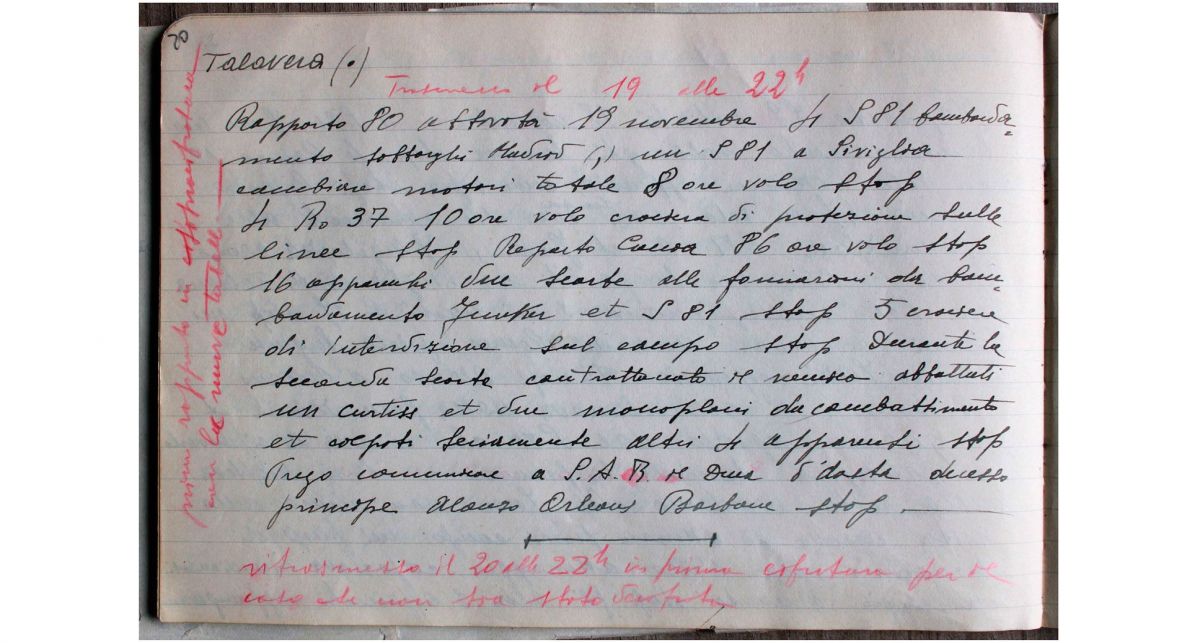 20
Talavera (.)
Trasmesso il 19 alle 22h
Rapporto 80 attività 19 novembre 4 S 81 bombarda=
mento Madrid (,) un S 81 a Siviglia
cambiare motori totale 8 ore volo stop
4 Ro 37 10 ore volo crociera di protezione sulle
linee stop Reparto Caccia 86 ore volo stop
16 apparecchi due scorte alle formazioni da bom=
bardamento Junker et S 81 stop 5 crociere
di interdizione sul campo stop Durante la
seconda scorta il nemico abbattuti
un curtiss et due monoplani da combattimento
et colpiti seriamente altri 4 apparecchi stop
Prego comunicare a S.A.R. il Duca d'Aosta
principe Alonzo Orleans Borbone stop.
ritrasmesso il 20 alle 22h in prima cifratura per il
caso che non sia stato
primo rapporto in
con la nuova